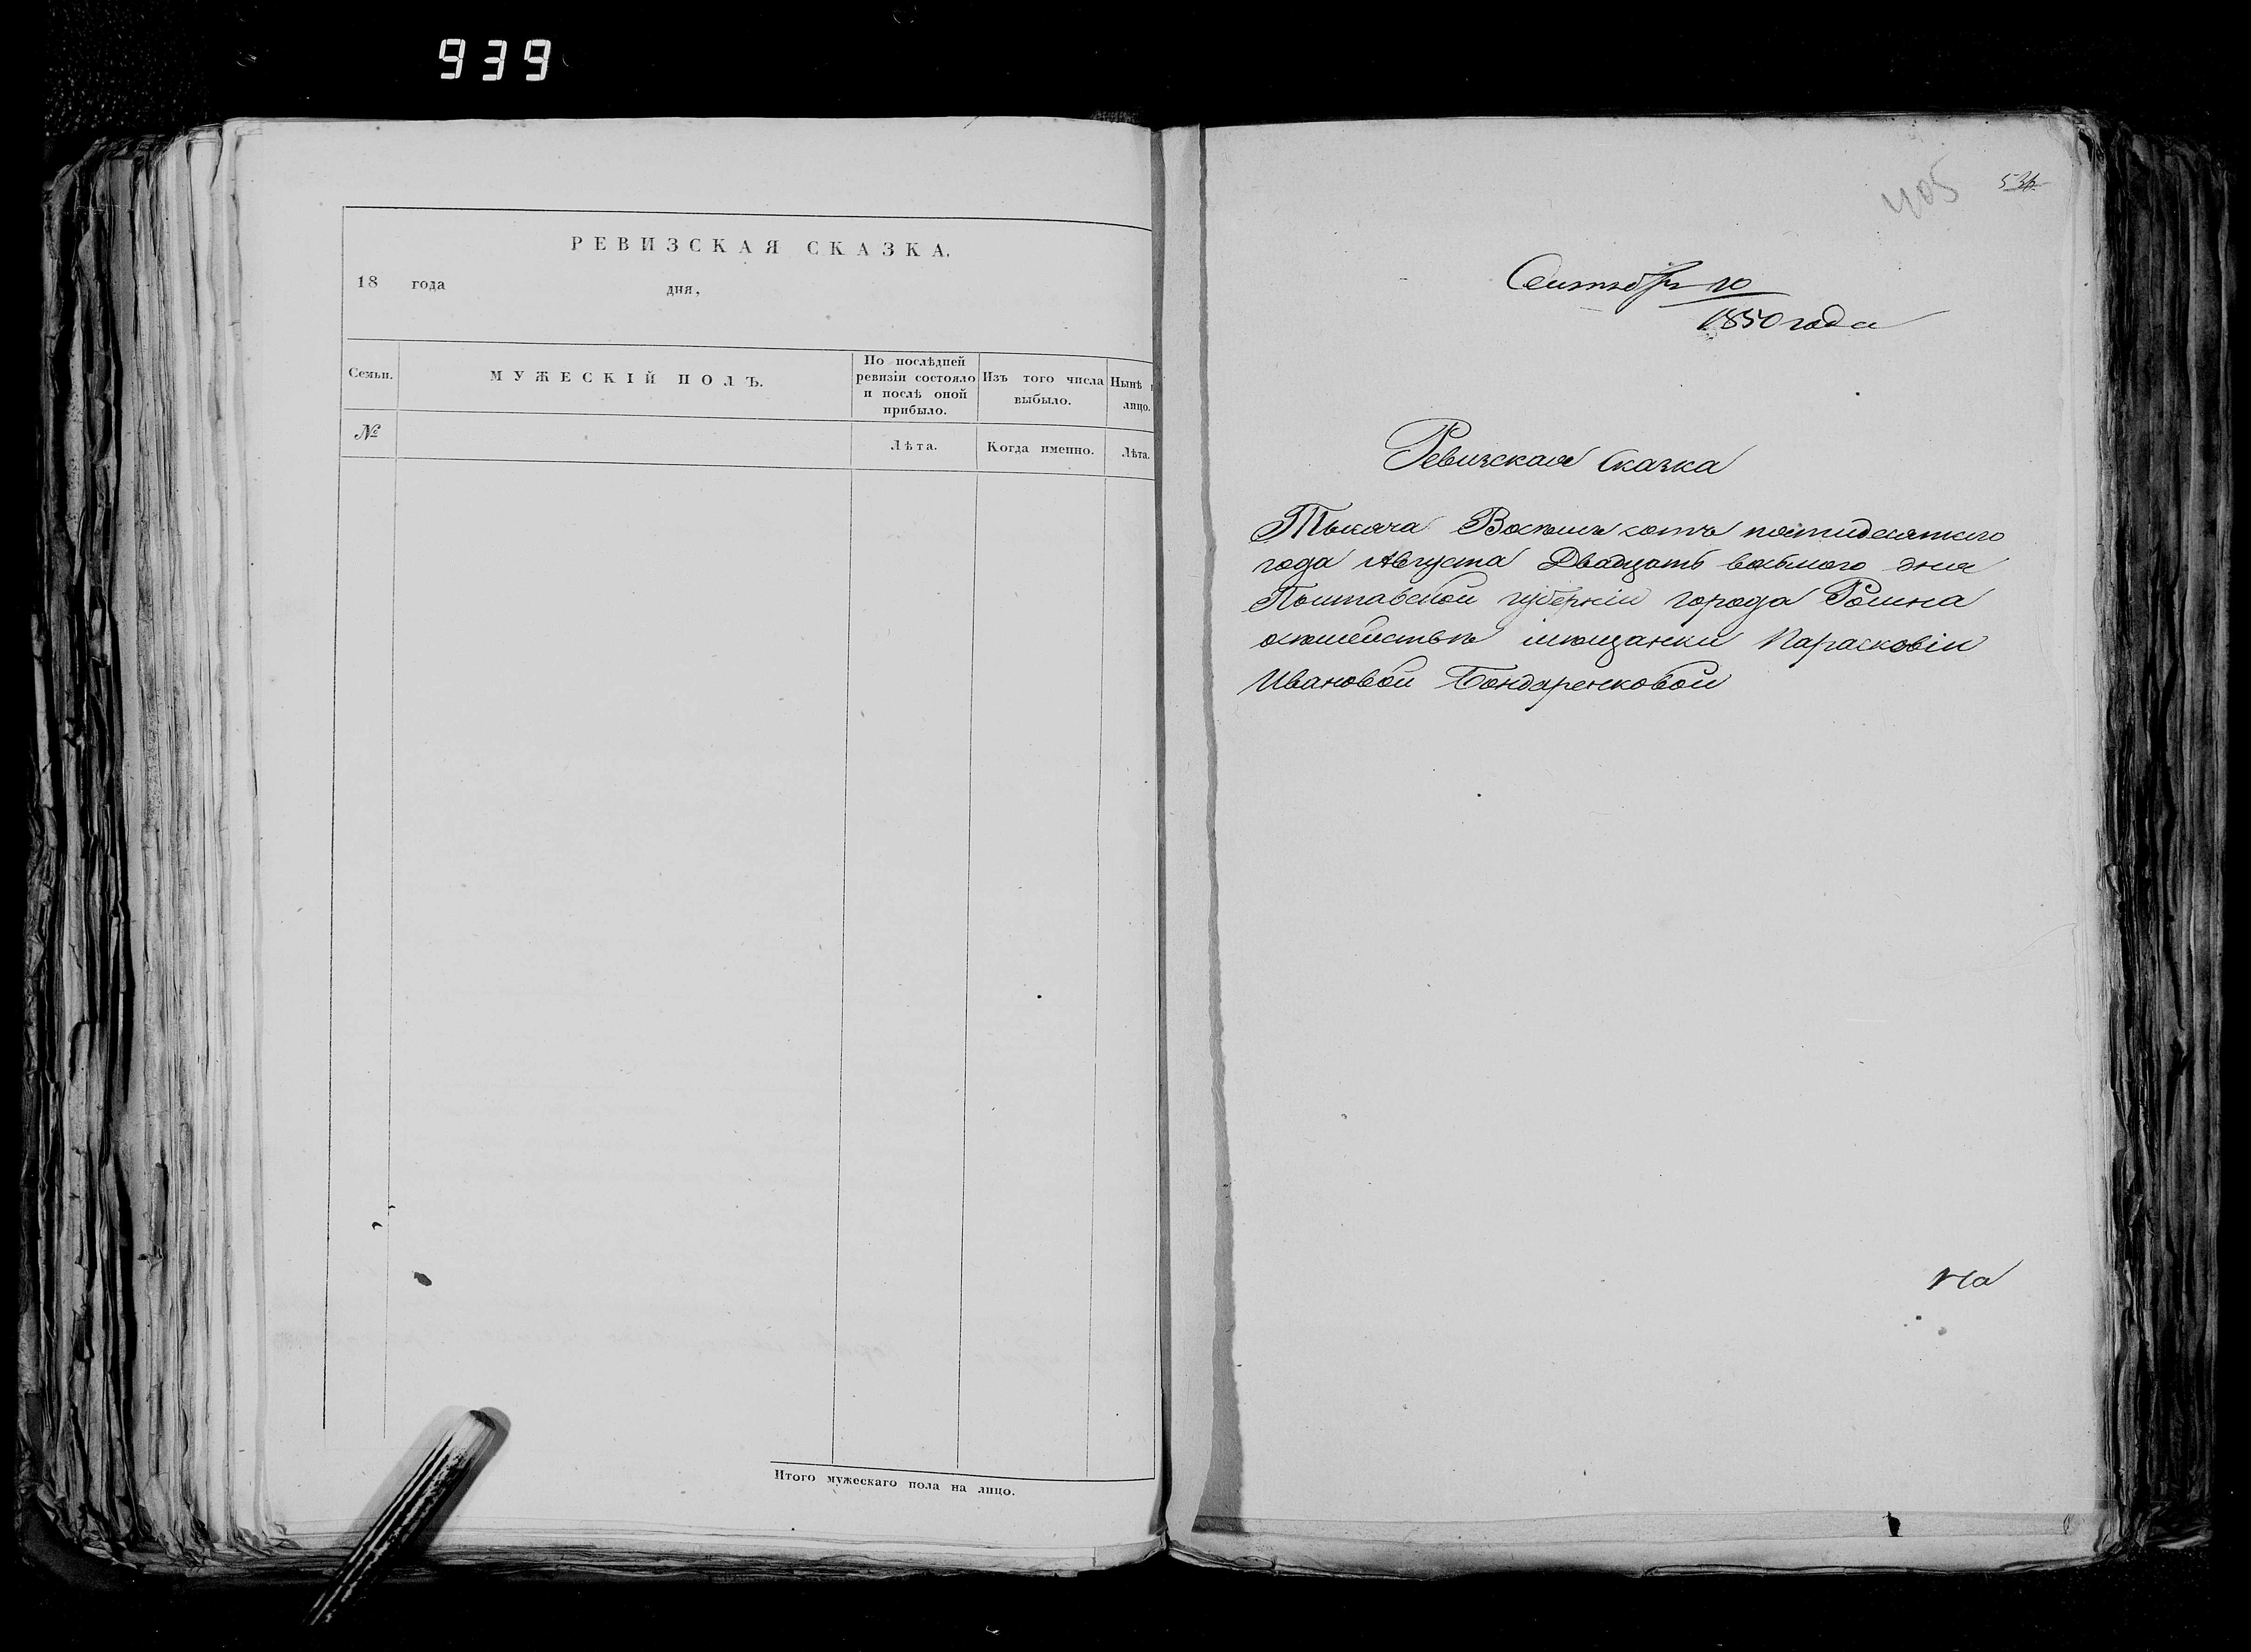 939
РЕВИЗСКАЯ СКАЗКА.
18 года дня,
Семьи.
МУЖЕСКІЙ ПОЛЪ.
По послѣдней
ревизіи состояло
и послѣ оной
прибыло.
Изъ того числа
выбыло.
Нынѣ
лицо.
№
Лѣта.
Когда именно.
Лѣта.
Итого мужескаго пола на лицо.
405
Сентября 10
1850 года
Ревизская Сказка
Тысяча Восемь сотъ пятидесятого
года Августа Двадцать восьмого дня
Полтавской губерніи города Ромна
осемействѣ мѣщанки Парасковіи
Ивановой Бондаренковой
На